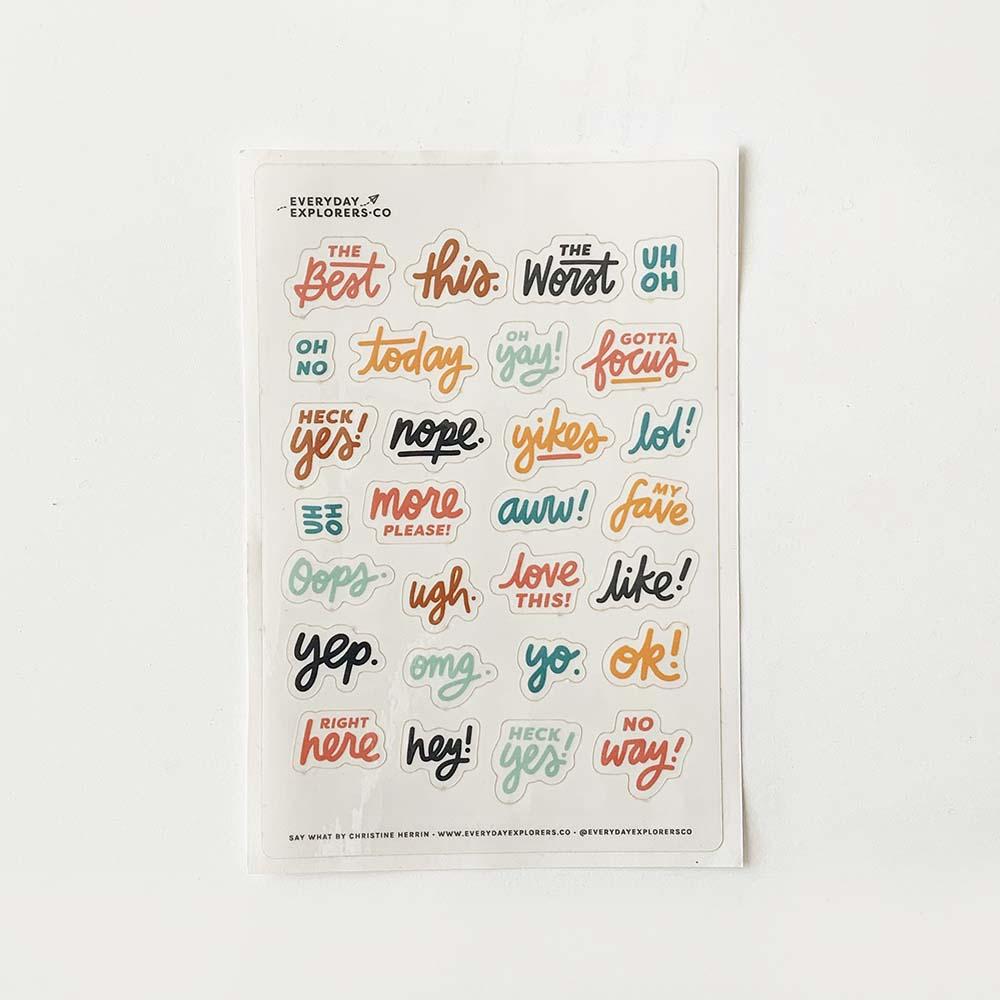 EVERYDAY
EXPLORERS·CO
THE
Best
this.
THE
Worst
UH
OH
OH
NO
today
OH
yay!
GOTTA
focus
HECK
yes!
nope.
yikes
lol!
UH
OH
more
PLEASE!
aww!
MY
fave
Oops.
ugh.
love
THIS!
like!
yep.
omg.
yo.
ok!
RIGHT
here
hey!
HECK
yes!
NO
way!
SAY WHAT BY CHRISTINE HERRIN • WWW.EVERYDAYEXPLORERS.CO • @EVERYDAYEXPLORERSCO